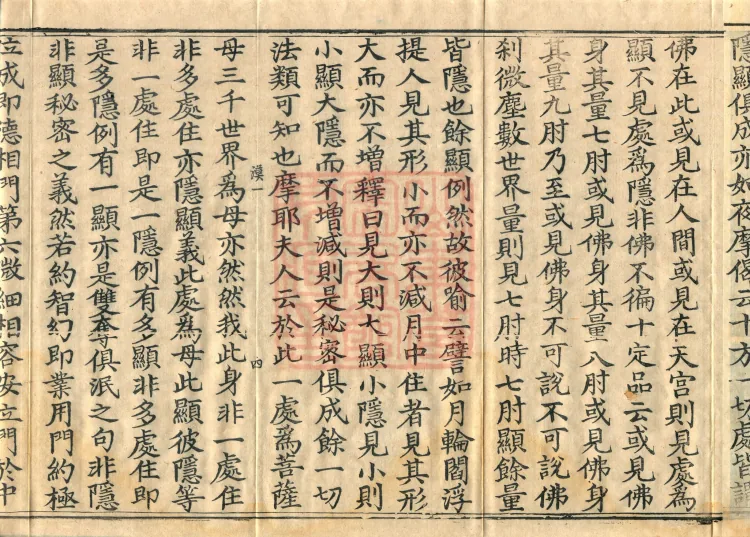 隱顯俱成亦如夜摩偈云十方一切處皆謂
佛在此或見在人間或見在天宮則見處爲
顯不見處爲隱非佛不徧十定品云或見佛
身其量七肘或見佛身其量八肘或見佛身
其量九肘乃至或見佛身不可說不可說佛
刹微塵數世界量則見七肘時七肘顯餘量
皆隱也餘顯例然故彼喻云譬如月輪閻浮
提人見其形小而亦不減月中住者見其形
大而亦不增釋曰見大則大顯小隱見小則
小顯大隱而不增減則是秘密俱成餘一切
法類可知也摩耶夫人云於此一處爲菩薩
漠一 四
母三千世界爲母亦然然我此身非一處住
非多處住亦隱顯義此處爲母此顯彼隱等
非一處住即是一隱例有多顯非多處住即
是多隱例有一顯亦是雙奪俱泯之句非隱
非顯秘密之義然若約智幻即業用門約極
位成即德相門第六微細相容安立門於中